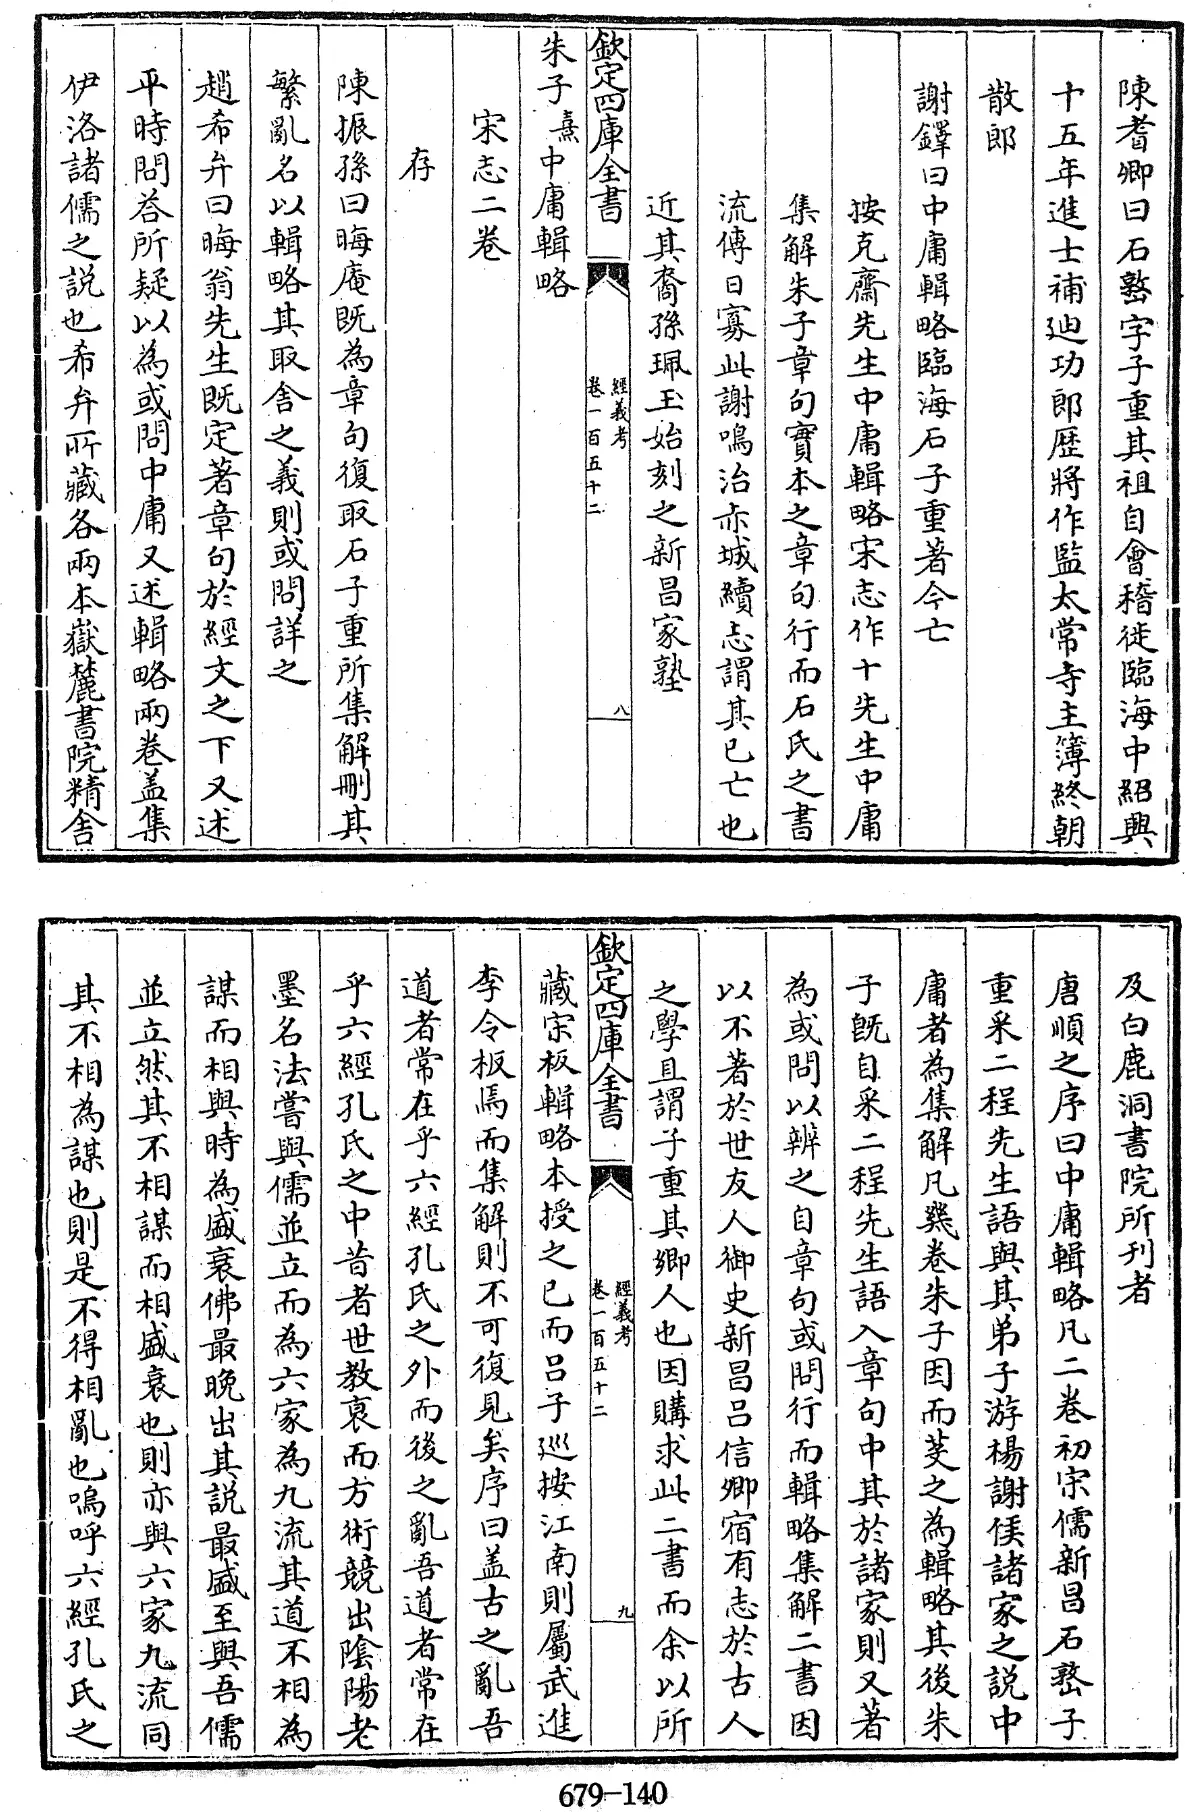 陳耆卿曰石𡼖字子重其祖自會稽徙臨海中紹興
十五年進士補迪功郎歴將作監太常寺主簿終朝
散郎
謝鐸曰中庸輯略臨海石子重著今亡
按克齋先生中庸輯略宋志作十先生中庸
集解朱子章句實本之章句行而石氏之書
流傳日寡此謝鳴治赤城續志謂其已亡也
近其裔孫珮玉始刻之新昌家塾
欽定四庫全書
經義考
卷一百五十二
八
朱子熹中庸輯略
宋志二卷
存
陳振孫曰晦庵既為章句復取石子重所集解刪其
繁亂名以輯略其取舍之義則或問詳之
趙希弁曰晦翁先生既定著章句於經文之下又述
平時問答所疑以為或問中庸又述輯略兩卷盖集
伊洛諸儒之説也希弁所藏各兩本嶽麓書院精舍
及白鹿洞書院所刊者
唐順之序曰中庸輯略凡二卷初宋儒新昌石𡼖子
重采二程先生語與其弟子游楊謝侯諸家之説中
庸者為集解凡幾卷朱子因而芟之為輯略其後朱
子既自采二程先生語入章句中其於諸家則又著
為或問以辨之自章句或問行而輯略集解二書因
以不著於世友人御史新昌吕信卿宿有志於古人
之學且謂子重其鄉人也因購求此二書而余以所
欽定四庫全書
經義考
卷一百五十二
九
藏宋板輯略本授之已而吕子巡按江南則屬武進
李令板焉而集解則不可復見矣序曰盖古之亂吾
道者常在乎六經孔氏之外而後之亂吾道者常在
乎六經孔氏之中昔者世教衰而方術競出隂陽老
墨名法嘗與儒並立而為六家為九流其道不相為
謀而相與時為盛衰佛最晚出其説最盛至與吾儒
並立然其不相謀而相盛衰也則亦與六家九流同
其不相為謀也則是不得相亂也嗚呼六經孔氏之
679-140